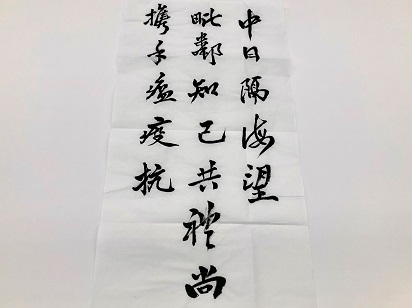 中日隔海望
毗鄰知己共禮尚
攜手瘟疫抗